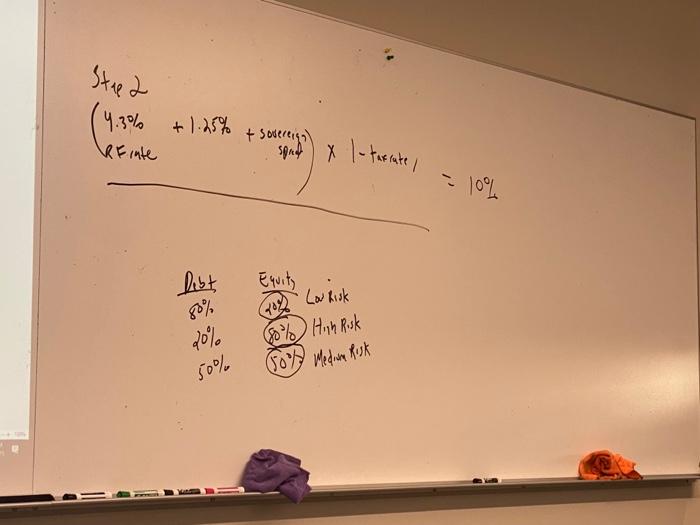 Step 2
(4.3% + 1.25% + sovereign spread) x 1-tax rate, = 10%
RF rate
Debt Equity
80% 20% Low Risk
20% 80% High Risk
50% 50% Medium Risk